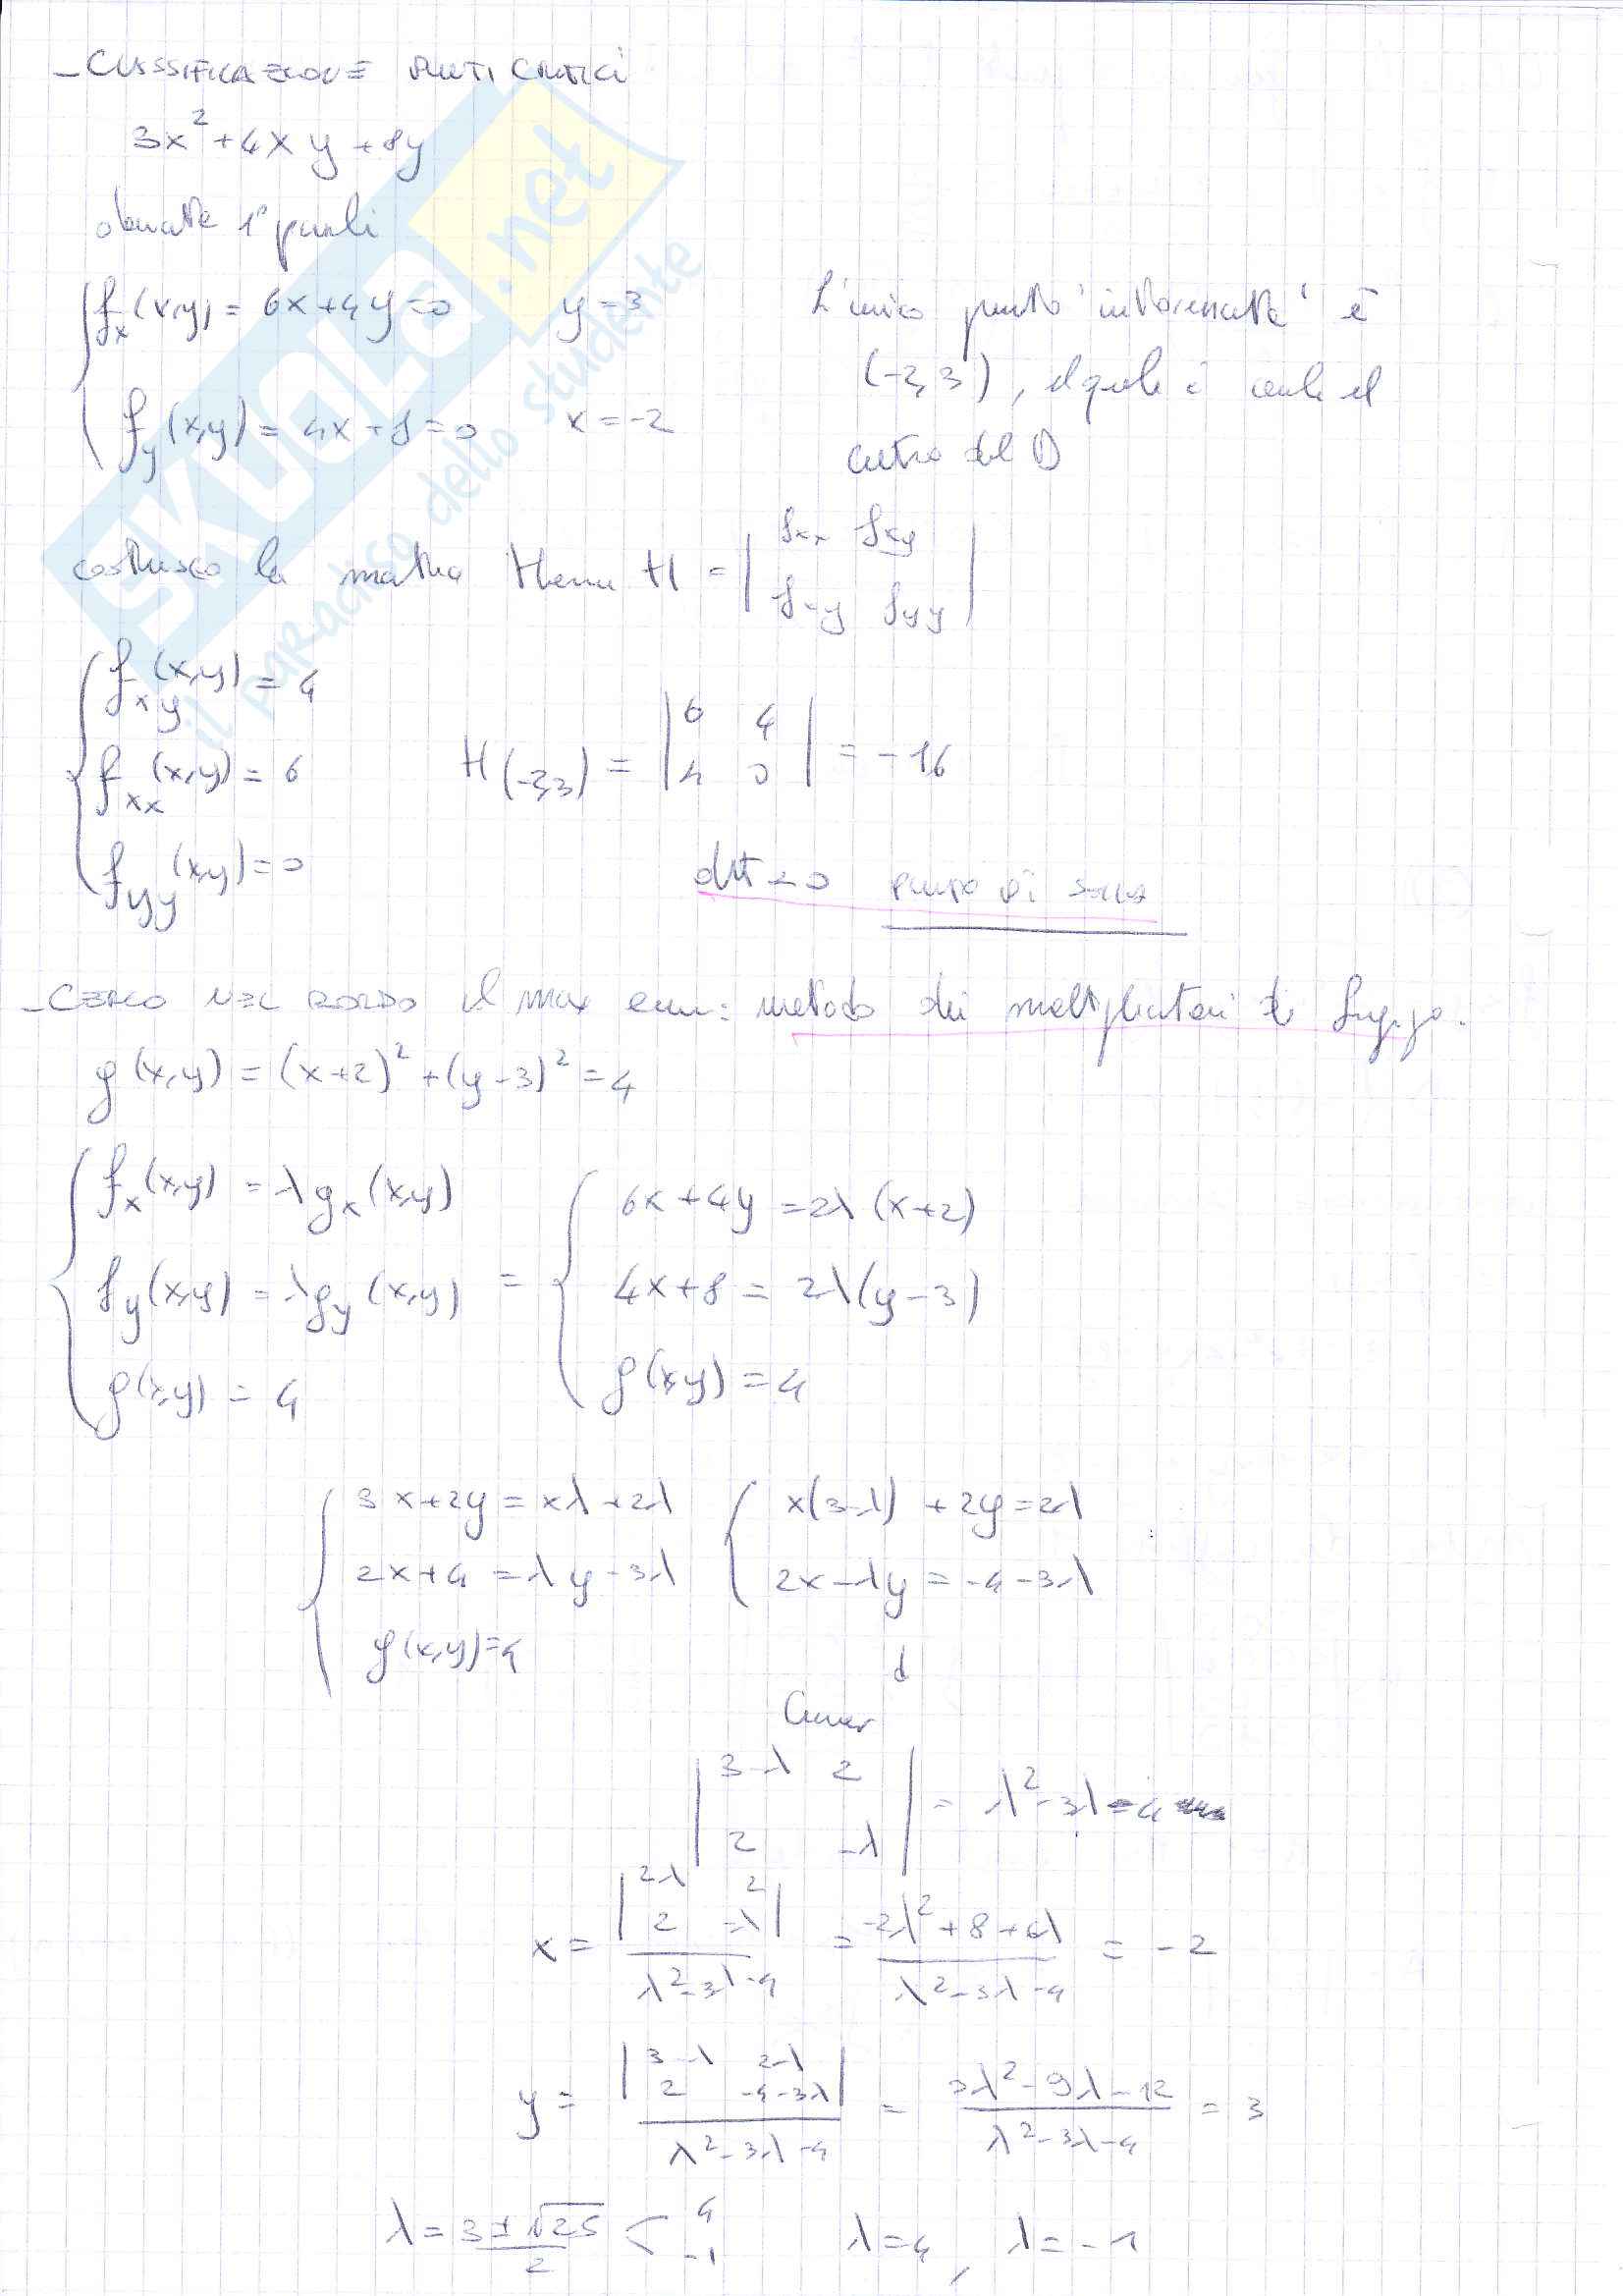 - CLASSIFICAZIONE PUNTI CRITICI
3x² + 4xy + 8y
punti
f_x(x,y) = 6x+4y=0 y=3
f_y(x,y) = 4x+8=0 x=-2
L'unico punto "interessante" è
(-2,3), il quale è anche il
centro del D
costruisco la matrice Hessiana H = | f_xx f_xy |
| f_xy f_yy |
f_xy(x,y) = 4
f_xx(x,y) = 6
f_yy(x,y) = 0
H(-2,3) = | 6 4 | = -16
| 4 0 |
det < 0 PUNTO DI SELLA
- CERCO NEL BORDO il max e min: metodo dei moltiplicatori di Lagrange.
g(x,y) = (x+2)² + (y-3)² = 4
f_x(x,y) = λg_x(x,y)
f_y(x,y) = λg_y(x,y)
g(x,y) = 4
= 6x+4y = 2λ(x+2)
4x+8 = 2λ(y-3)
g(x,y) = 4
3x+2y = xλ+2λ x(3-λ) + 2y = 2λ
2x+4 = λy-3λ 2x-λy = -4-3λ
g(x,y)=4
Cramer
| 3-λ 2 | = λ²-3λ-4
| 2 -λ |
x = | 2λ 2 | = -2λ²+8+6λ = -2
| 2 -λ |
λ²-3λ-4 λ²-3λ-4
y = | 3-λ 2λ | = 3λ²-9λ-12 = 3
| 2 -4-3λ |
λ²-3λ-4 λ²-3λ-4
λ = 3±√25 < 4 λ=4, λ=-1
2 -1
SKUOLA.net
il paradiso dello studente